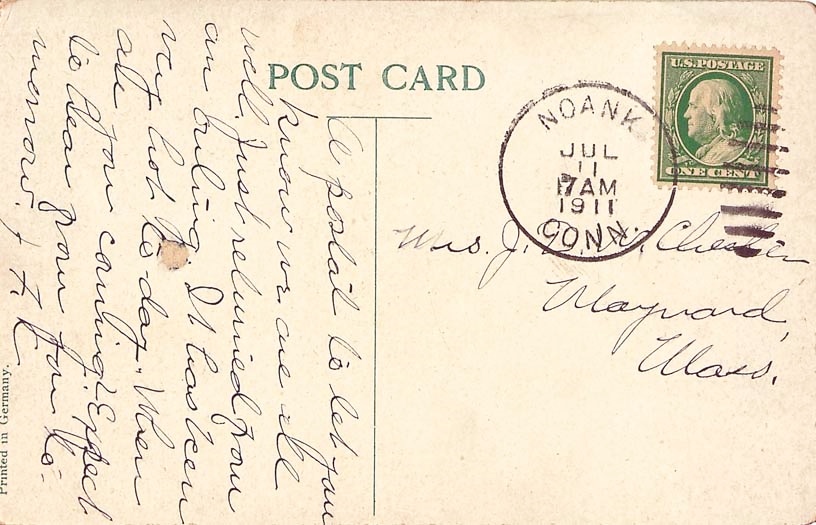 POST CARD
U.S. POSTAGE
ONE CENT
NOANK
JUL
11
7 AM
1911
CONN.
Mrs. J.
Maynard,
Mass.
A postal to let you
know we are all
well. Just returned from
an outing. It has been
very hot to-day. When
are you coming? Expect
to hear from you to-
morrow.
Printed in Germany.